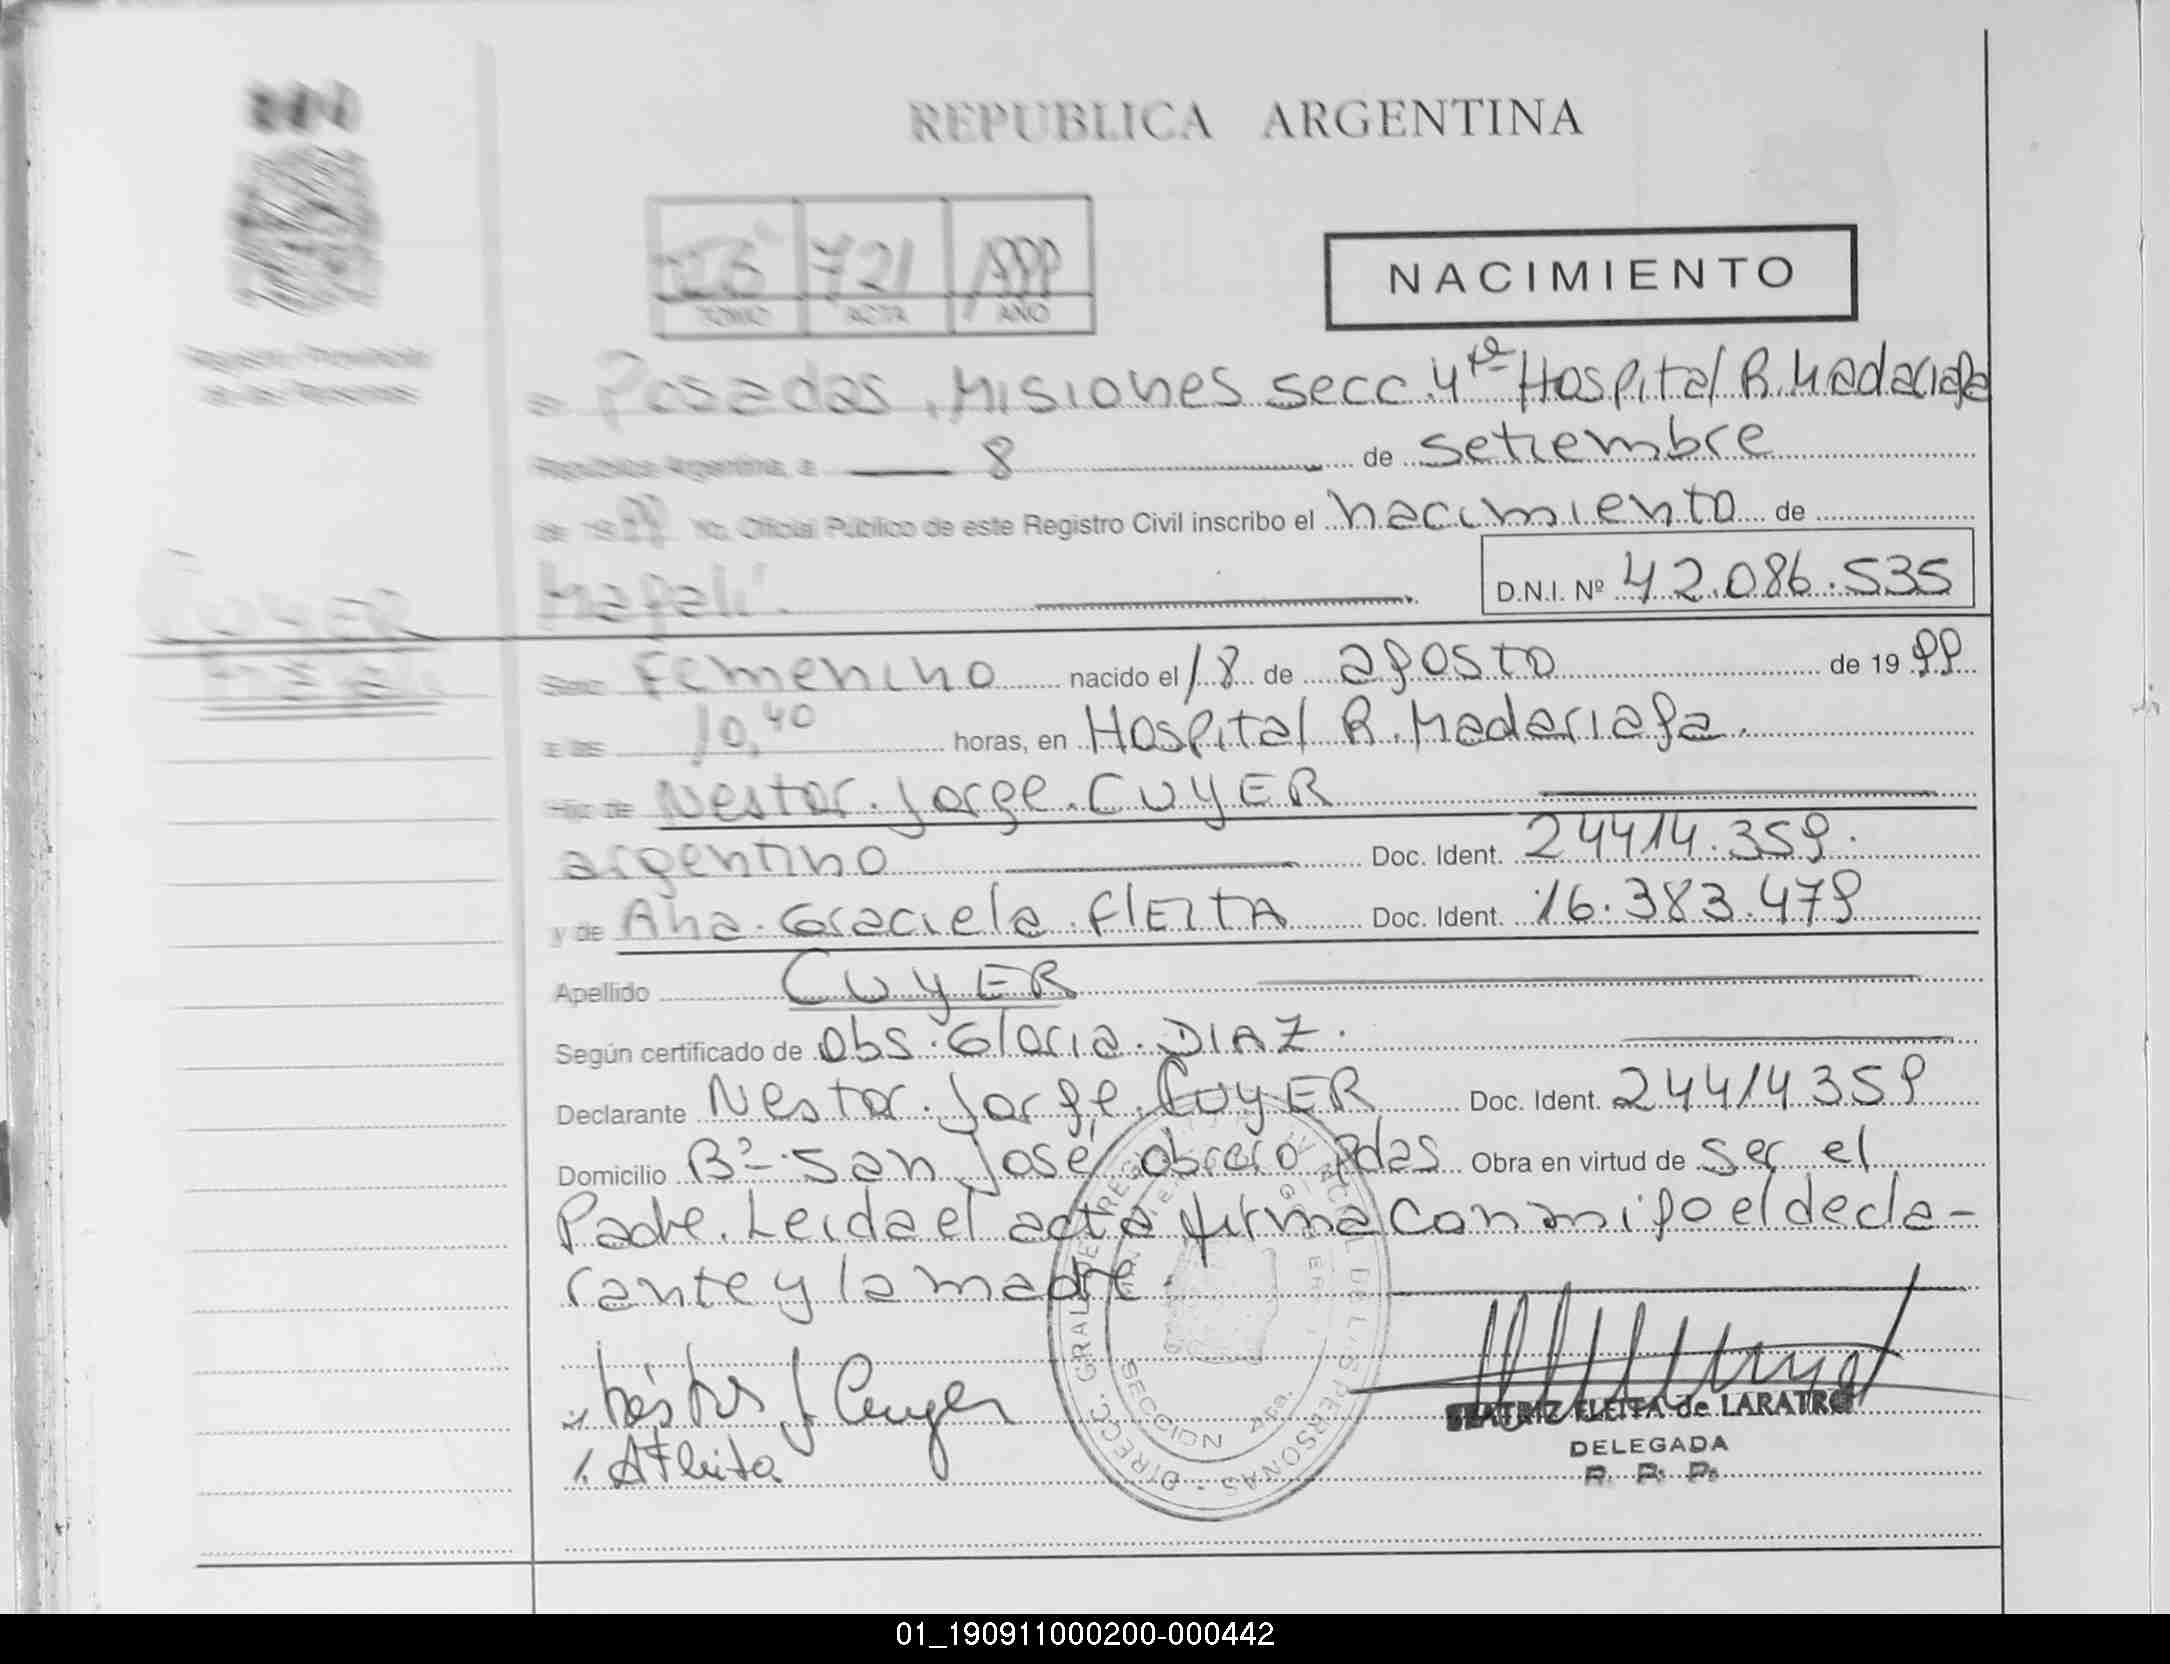 REPUBLICA ARGENTINA
721 1999
TOMO ACTA AÑO
NACIMIENTO
Registro Provincial
de las Personas
en Posadas, Misiones secc. 4ta Hospital R. Madariaga
República Argentina, a 8 de setiembre
de 1999 Yo, Oficial Público de este Registro Civil inscribo el nacimiento de
Magalí. D.N.I. Nº 42.086.535
CUYER
Magalí
Sexo Femenino nacido el 18 de agosto de 1999
a las 10,40 horas, en Hospital R. Madariaga.
Hijo de Nestor Jorge CUYER
argentino Doc. Ident. 24414.359.
y de Ana Graciela FlEITA Doc. Ident. 16.383.479
Apellido CUYER
Según certificado de Obs. Gloria DIAZ.
Declarante Nestor Jorge CUYER Doc. Ident. 24414359
Domicilio Bº San José obrero Pdas Obra en virtud de ser el
Padre. Leida el acta firma con migo el decla-
rante y la madre.
Néstor J. Cuyer
A Fleita
DIRECC. GRAL. DE REG. DE LAS PERSONAS
SECCION 4ta.
BEATRIZ FLEITA de LARATRO
DELEGADA
R. P. P.
01_190911000200-000442